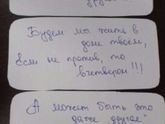 Будем мы жить в
доме твоём,
Если не против, то
вчетвером!!!
А может быть это
даже другая